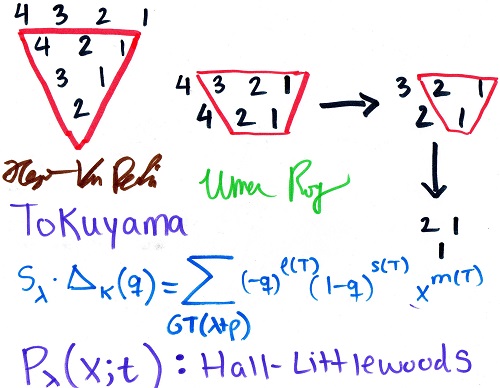 4 3 2 1
4 2 1
3 1
2
4 3 2 1
4 2 1
3 2 1
2 1
2 1
1
Tokuyama
S_λ · Δ_K(q) = ∑ (-q)^{ℓ(T)} (1-q)^{s(T)} x^{m(T)}
GT(λ+ρ)
P_λ(x;t) : Hall-Littlewoods